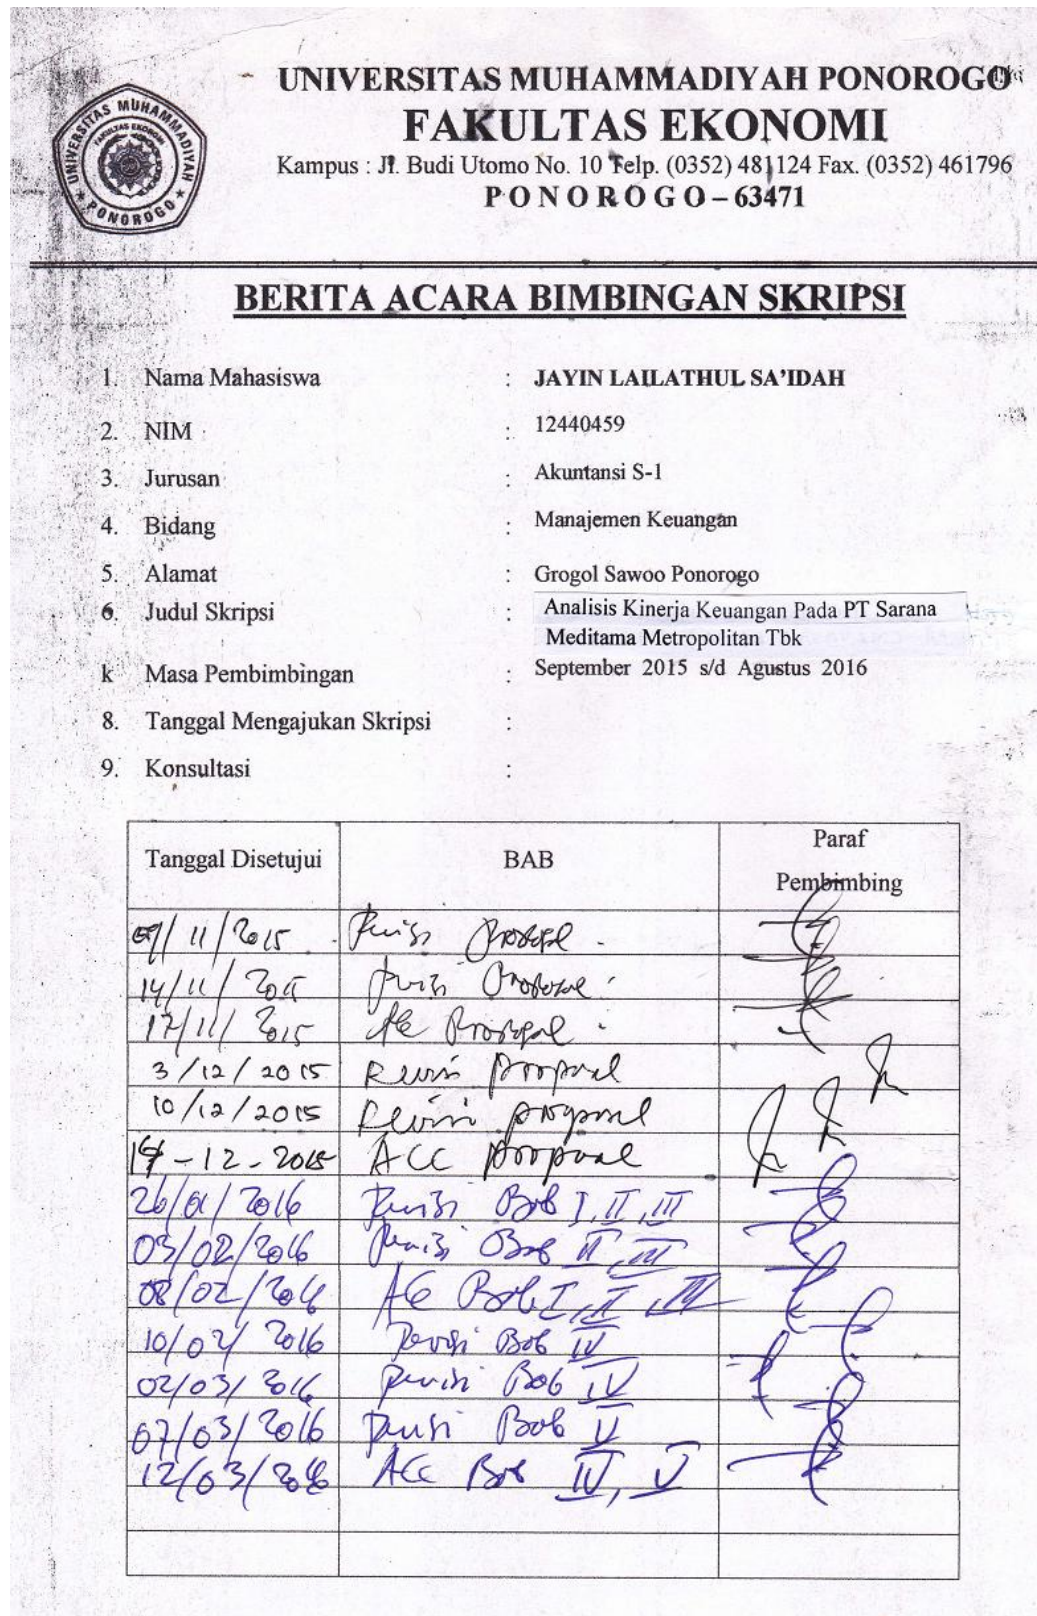 UNIVERSITAS MUHAMMADIYAH PONOROGO
FAKULTAS EKONOMI
Kampus : Jl. Budi Utomo No. 10 Telp. (0352) 481124 Fax. (0352) 461796
PONOROGO – 63471
UNIVERSITAS MUHAMMADIYAH
FAKULTAS EKONOMI
PONOROGO
BERITA ACARA BIMBINGAN SKRIPSI
1. Nama Mahasiswa : JAYIN LAILATHUL SA'IDAH
2. NIM : 12440459
3. Jurusan : Akuntansi S-1
4. Bidang : Manajemen Keuangan
5. Alamat : Grogol Sawoo Ponorogo
6. Judul Skripsi : Analisis Kinerja Keuangan Pada PT Sarana
Meditama Metropolitan Tbk
k Masa Pembimbingan : September 2015 s/d Agustus 2016
8. Tanggal Mengajukan Skripsi :
9. Konsultasi :
Tanggal Disetujui BAB Paraf
Pembimbing
09/11/2015 Revisi Proposal
14/11/2015 Revisi Proposal
17/11/2015 Acc Proposal
3/12/2015 Revisi proposal
10/12/2015 Revisi proposal
-12-2015 ACC proposal
26/01/2016 Revisi Bab I, II, III
03/02/2016 Revisi Bab II, III
08/02/2016 Acc Bab I, II, III
10/02/2016 Revisi Bab IV
02/03/2016 Revisi Bab IV
07/03/2016 Revisi Bab V
12/03/2016 ACC Bab IV, V